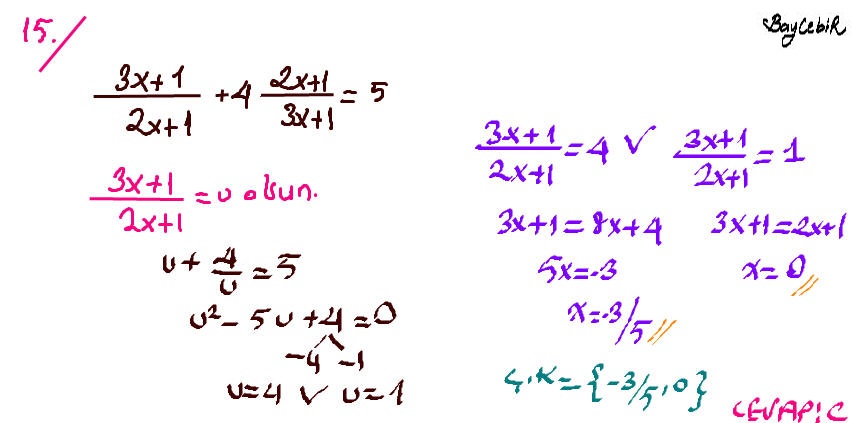 15./
BaycebiR
3x+1/2x+1 + 4 2x+1/3x+1 = 5
3x+1/2x+1 = u olsun.
u + 4/u = 5
u² - 5u + 4 = 0
-4 -1
u=4 ∨ u=1
3x+1/2x+1 = 4 ∨ 3x+1/2x+1 = 1
3x+1=8x+4 3x+1=2x+1
5x=-3 x=0//
x=-3/5//
Ç.K={-3/5,0}
CEVAP: C